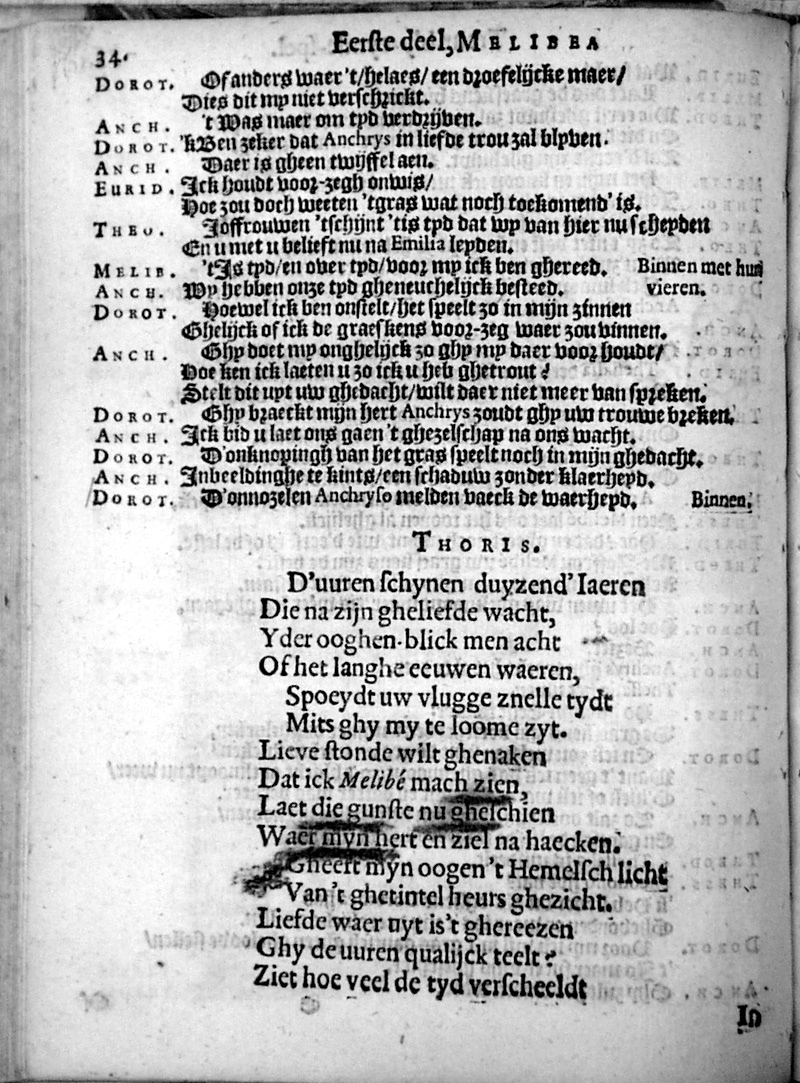 34.
Eerste deel, MELIBEA
DOROT. Of anders waer 't/ helaes/ een droefelijcke maer/
Dies dit my niet verschrickt.
ANCH. 't Was maer om tyd verdrijven.
DOROT. 'k Ben zeker dat Anchrys in liefde trou zal blyven.
ANCH. Daer is gheen twijffel aen.
EURID. Ick houdt voor-zegh onwis/
Hoe zou doch weeten 't gras wat noch toekomend' is.
THEO. Joffrouwen 't schijnt 'tis tyd dat wy van hier nu scheyden
En u met u belieft nu na Emilia leyden.
MELIB. 't Is tyd/ en over tyd/ voor my ick ben ghereed. Binnen met hun
ANCH. Wy hebben onze tyd gheneuchelijck besteed. vieren.
DOROT. Hoewel ick ben onstelt/ het speelt zo in mijn zinnen
Ghelijck of ick de graeskens voor-zeg waer zou vinnen.
ANCH. Ghy doet my onghelijck zo ghy my daer voor houdt/
Hoe ken ick laeten u zo ick u heb ghetrout?
Stelt dit uyt uw ghedacht/ wilt daer niet meer van spreken.
DOROT. Ghy braeckt mijn hert Anchrys zoudt ghy uw trouwe breken.
ANCH. Ick bid u laet ons gaen 't ghezelschap na ons wacht.
DOROT. D'onknopingh van het gras speelt noch in mijn ghedacht.
ANCH. Inbeeldinghe te kints/ een schaduw zonder klaerheyd.
DOROT. D'onnozelen Anchryso melden vaeck de waerheyd. Binnen.
THORIS.
D'uuren schynen duyzend' Iaeren
Die na zijn gheliefde wacht,
Yder ooghen-blick men acht
Of het langhe eeuwen waeren,
Spoeydt uw vlugge znelle tydt
Mits ghy my te loome zyt.
Lieve stonde wilt ghenaken
Dat ick Melibé mach zien,
Laet die gunste nu gheschien
Waer myn hert en ziel na haecken.
Gheeft myn oogen 't Hemelsch licht
Van 't ghetintel heurs ghezicht.
Liefde waer uyt is't ghereezen
Ghy de uuren qualijck teelt?
Ziet hoe veel de tyd verscheeldt
In